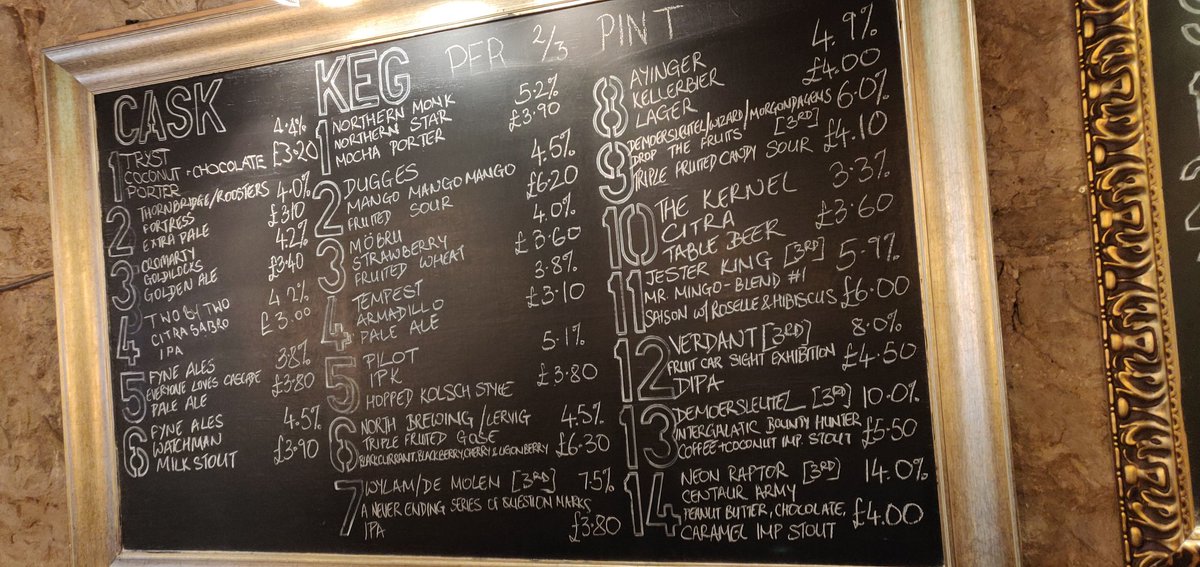 CASK
1 TRYST 4.4%
COCONUT + CHOCOLATE £3.20
PORTER
2 THORNBRIDGE/ROOSTERS 4.0%
FORTRESS £3.10
EXTRA PALE
3 CROMARTY 4.2%
GOLDILOCKS £3.40
GOLDEN ALE
4 TWO BY TWO 4.2%
CITRA SABRO £3.00
IPA
5 FYNE ALES 3.8%
EVERYONE LOVES CASCADE £3.80
PALE ALE
6 FYNE ALES 4.5%
WATCHMAN £3.90
MILK STOUT
KEG PER 2/3 PINT
1 NORTHERN MONK 5.2%
NORTHERN STAR £3.90
MOCHA PORTER
2 DUGGES 4.5%
MANGO MANGO MANGO £6.20
FRUITED SOUR
3 MÖBRU 4.0%
STRAWBERRY £3.60
FRUITED WHEAT
4 TEMPEST 3.8%
ARMADILLO £3.10
PALE ALE
5 PILOT 5.1%
IPK £3.80
HOPPED KOLSCH STYLE
6 NORTH BREWING/LERVIG 4.5%
TRIPLE FRUITED GOSE
BLACKCURRANT, BLACKBERRY, CHERRY & LIGONBERRY £6.30
7 WYLAM/DE MOLEN [3RD] 7.5%
A NEVER ENDING SERIES OF QUESTION MARKS
IPA £3.80
8 AYINGER 4.9%
KELLERBIER £4.00
LAGER
9 DEMOERSLEUTEL/WIZARD/MORGONDAGENS 6.0%
DROP THE FRUITS [3RD] £4.10
TRIPLE FRUITED CANDY SOUR
10 THE KERNEL 3.3%
CITRA £3.60
TABLE BEER
11 JESTER KING [3RD] 5.9%
MR. MINGO - BLEND #1
SAISON W/ ROSELLE & HIBISCUS £6.00
12 VERDANT [3RD] 8.0%
FRUIT CAR SIGHT EXHIBITION £4.50
DIPA
13 DEMOERSLEUTEL [3RD] 10.0%
INTERGALATIC BOUNTY HUNTER £5.50
COFFEE + COCONUT IMP. STOUT
14 NEON RAPTOR [3RD] 14.0%
CENTAUR ARMY
PEANUT BUTTER, CHOCOLATE, £4.00
CARAMEL IMP STOUT